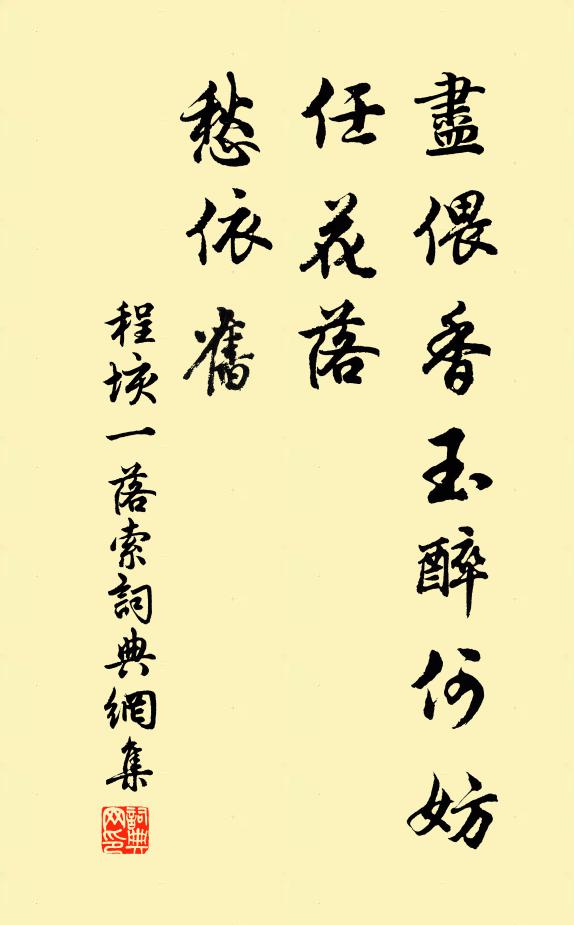 盡偎香玉醉何妨
任花落
愁依舊
程垓一落索詞典網集
詞典网印